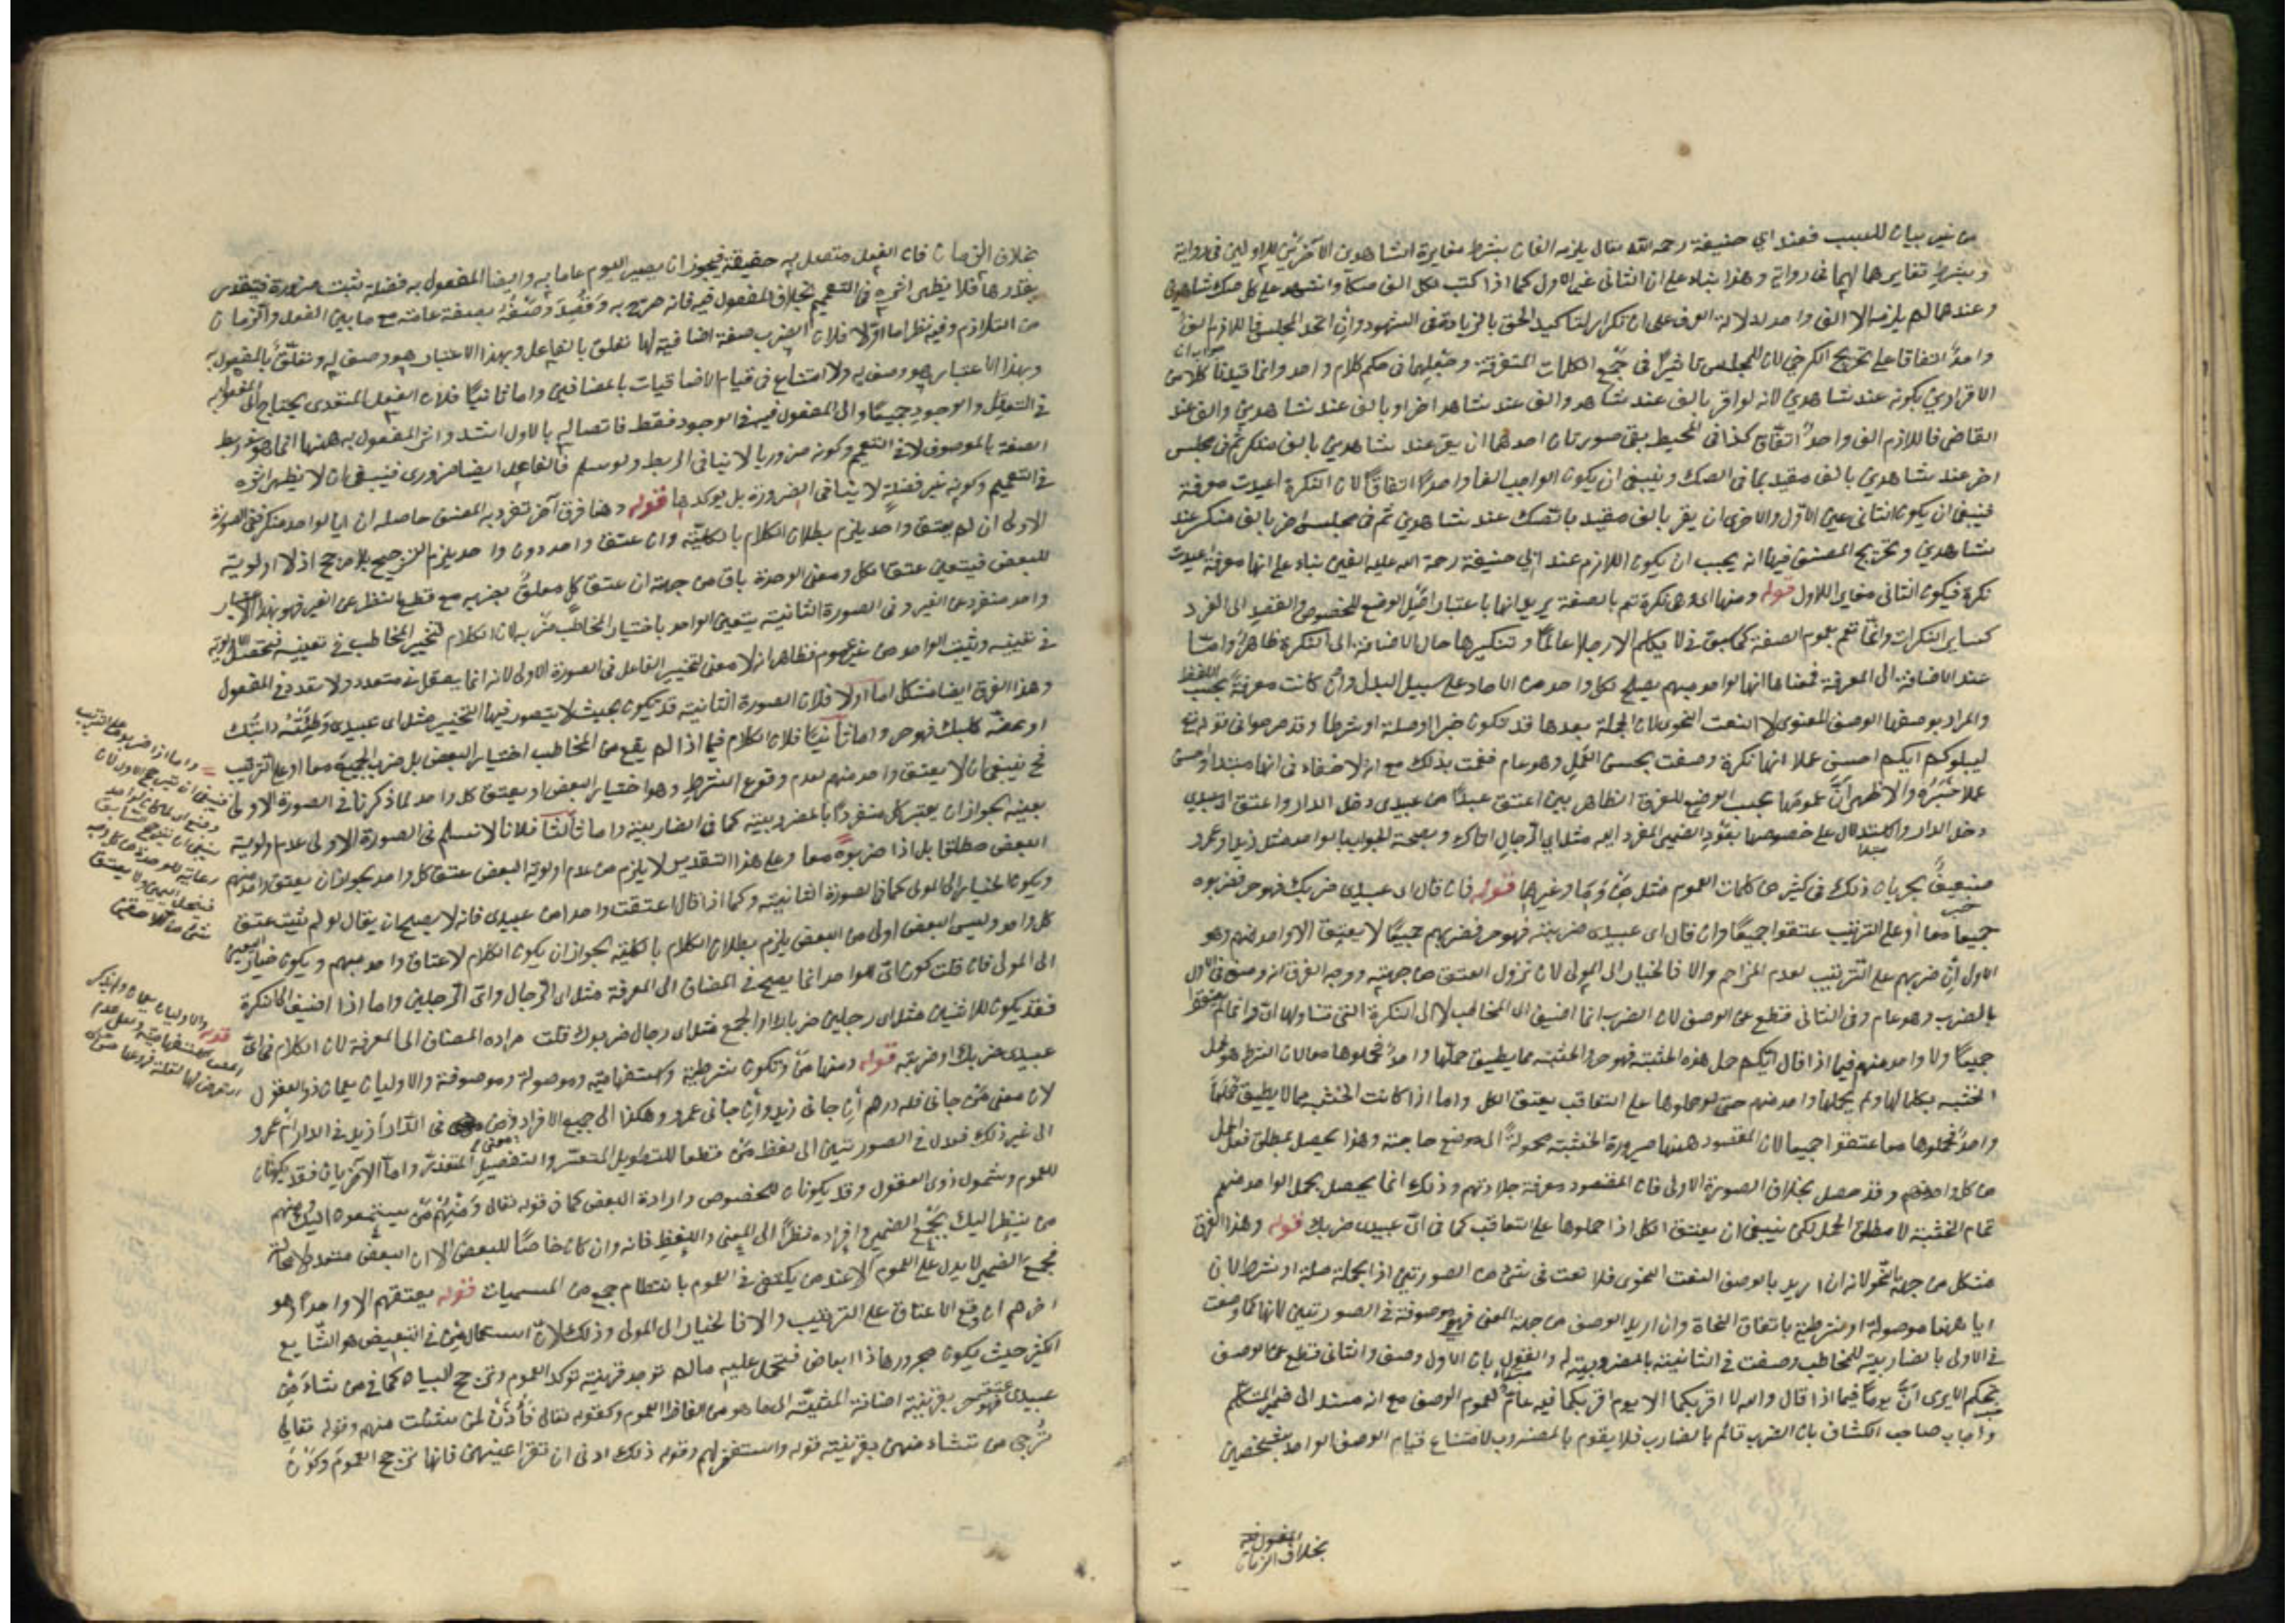 من غير بيان للسبب فعند ابي حنيفة رحمه الله تعالى يلزمه الفان بشرط مغايرة الشاهدين الآخرين للاولين في رواية
وبشرط تغايرهما لهما في رواية وهذا بناء على ان الثاني غير الاول كما اذا كتب لكل الف صكا واشهد على كل صك شاهدين
وعندهما لم يلزمه الا الف واحد لدلالة العرف على ان تكرار لتاكيد الحق بالزيادة في الشهود وان اتحد المجلس فاللازم الف
واحد اتفاقا على تخريج الكرخي لان للمجلس تاثيرا في جمع الكلمات المتفرقة وجعلها في حكم كلام واحد وانما قيدنا كلا من
الاقرارين بكونه عند شاهدين لانه لو اقر بالف عند شاهد والف عند شاهد اخر او بالف عند شاهدين والف عند
القاضي فاللازم الف واحد اتفاقا كذا في المحيط بقي صورتان احدهما ان يقر عند شاهدين بالف منكر ثم في مجلس
اخر عند شاهدين بالف مقيد بما في الصك وينبغي ان يكون الواجب الفا واحدا اتفاقا لان النكرة اعيدت معرفة
فينبغي ان يكون الثاني عين الاول والاخرى ان يقر بالف مقيد بالصك عند شاهدين ثم في مجلس اخر بالف منكر عند
شاهدين وتخريج المصنف فيها انه يجب ان يكون اللازم عند ابي حنيفة رحمة الله عليه الفين بناء على انها معرفة اعيدت
نكرة فيكون الثاني مغايرا للاول قوله ومنها اي وهي نكرة تعم بالصفة يريد انها باعتبار اصل الوضع للخصوص والقصد الى الفرد
كسائر النكرات وانما تعم بعموم الصفة كما سبق في لا يكلم الا رجلا عالما وتنكيرها حال الاضافة الى النكرة ظاهر واما
عند الاضافة الى المعرفة فمعناها انها لواحد مبهم يصلح لكل واحد من الآحاد على سبيل البدل وان كانت معرفة بحسب اللفظ
والمراد بوصفها الوصف المعنوي لا النعت النحوي لان الجملة بعدها قد تكون خبرا او صلة او شرطا وقد صرحوا في قوله تع
ليبلوكم ايكم احسن عملا انها نكرة وصفت بحسن العمل وهو عام فعمت بذلك مع انه لا خفاء في انها مبتدا واحسن
عملا خبره والاظهر ان عمومها بحسب الوضع للفرق الظاهر بين اعتق عبدا من عبيدي دخل الدار واعتق اي عبيدي
دخل الدار والاستدلال على خصوصها بعود الضمير المفرد اليه مثل اي الرجال اتاك وبصحة الجواب بالواحد مثل زيد او عمرو
ضعيف بجريان ذلك في كثير من كلمات العموم مثل من وما وغيرها قوله فان قال اي عبيدي ضربك فهو حر فضربوه
جميعا معا او على الترتيب عتقوا جميعا وان قال اي عبيدي ضربته فهو حر فضربهم جميعا لا يعتق الا واحد منهم وهو
الاول ان ضربهم على الترتيب لعدم المزاحم والا فالخيار الى المولى لان نزول العتق من جهته ووجه الفرق انه وصف في الاول
بالضرب وهو عام وفي الثاني قطع عن الوصف لان الضرب انما اضيف الى المخاطب لا الى النكرة التي تناولها اي وانما لم يعتقوا
جميعا ولا واحد منهم فيما اذا قال ايكم حمل هذه الخشبة فهو حر والخشبة مما يطيق حملها واحد فحملوها معا لان الشرط هو حمل
الخشبة بكمالها ولم يحملها واحد منهم حتى لو حملوها على التعاقب يعتق الكل واما اذا كانت الخشبة مما لا يطيق حملها
واحد فحملوها معا عتقوا جميعا لان المقصود ههنا صيرورة الخشبة محمولة الى موضع حاجته وهذا يحصل بمطلق فعل الحمل
من كل واحد منهم وقد حصل بخلاف الصورة الاولى فان المقصود معرفة جلادتهم وذلك انما يحصل بحمل الواحد منهم
تمام الخشبة لا مطلق الحمل لكن ينبغي ان يعتق الكل اذا حملوها على التعاقب كما في اي عبيدي ضربك قوله وهذا الفرق
مشكل من جهة النحو لانه ان اريد بالوصف النعت النحوي فلا نعت في شئ من الصورتين اذ الجملة صلة او شرط لان
ايا ههنا موصولة او شرطية باتفاق النحاة وان اريد الوصف من جهة المعنى فهي موصوفة في الصورتين لانها كما وصفت
في الاولى بالضاربية للمخاطب وصفت في الثانية بالمضروبية له والقول بان الاول وصف والثاني قطع عن الوصف
تحكم الا يرى ان يوما فيما اذا قال والله لا اقربكما الا يوم اقربكما فيه عام لعموم الوصف مع انه مسند الى ضمير المتكلم
واجاب صاحب الكشاف بان الضرب قائم بالضارب فلا يقوم بالمضروب لامتناع قيام الوصف الواحد بشخصين
بخلاف الزمان
بخلاف الزمان فان الفعل متصل به حقيقة فيجوز ان يصير اليوم عاما به وايضا المفعول به فضلة ثبت ضرورة فيتقدر
بقدرها فلا يظهر اثره في التعميم بخلاف المفعول فيه فانه صرح به وقصد وصفه بصفة عامة مع ما بين الفعل والزمان
من التلازم وفيه نظر اما اولا فلان الضرب صفة اضافية لها تعلق بالفاعل وبهذا الاعتبار هو وصف له وتعلق بالمفعول به
وبهذا الاعتبار هو وصف به ولا امتناع في قيام الاضافيات بالمضافين واما ثانيا فلان الفعل المتعدي يحتاج الى المفعول به
في التعقل والوجود جميعا والى المفعول فيه في الوجود فقط فاتصاله بالاول اشد واثر المفعول به ههنا انما هو في ربط
الصفة بالموصوف لا في التعميم وكونه ضروريا لا ينافي الربط ولو سلم فالفاعل ايضا ضروري فينبغي ان لا يظهر اثره
في التعميم وكونه غير فضلة لا ينافي الضرورة بل يوكدها قوله وهنا فرق آخر تفرد به المصنف حاصله ان ايا لواحد منكر ففي الصورة
الاولى ان لم يعتق واحد يلزم بطلان الكلام بالكلية وان عتق واحد دون واحد يلزم الترجيح بلا مرجح اذ لا اولوية
للبعض فيتعين عتق الكل ومعنى الوحدة باق من جهة ان عتق كل معلق بضربه مع قطع النظر عن الغير فهو بهذا الاعتبار
واحد منفرد عن الغير وفي الصورة الثانية يتعين الواحد باختيار المخاطب ضربه لان الكلام لتخيير المخاطب في تعيينه فيحصل الاولوية
ويثبت الواحد من غير عموم فظاهر انه لا معنى لتخيير الفاعل في الصورة الاولى لانه انما يعقل في متعدد ولا تعدد في المفعول
وهذا الفرق ايضا مشكل اما اولا فلان الصورة الثانية قد تكون بحيث لا يتصور فيها التخيير مثل اي عبيدي وطئته دابتك
او عضه كلبك فهو حر واما ثانيا فلان الكلام فيما اذا لم يقع من المخاطب اختيار البعض بل ضرب الجميع معا او على الترتيب
فح ينبغي ان لا يعتق واحد منهم لعدم وقوع الشرط وهو اختيار البعض او يعتق كل واحد لما ذكرنا في الصورة الاولى
بعينه لجواز ان يعتبر كل منفردا بالمضروبية كما في الضاربية واما ثالثا فلانا لا نسلم في الصورة الاولى عدم اولوية
البعض مطلقا بل اذا ضربوه معا وعلى هذا التقدير لا يلزم من عدم اولوية البعض عتق كل واحد لجواز ان يعتق واحد منهم
ويكون الخيار الى المولى كما في الصورة الثانية وكما اذا قال اعتقت واحدا من عبيدي فانه لا يصلح ان يقال لو لم يثبت عتق
كل واحد وليس البعض اولى من البعض يلزم بطلان الكلام بالكلية لجواز ان يكون الكلام لاعتاق واحد مبهم ويكون خيار التعيين
الى المولى فان قلت كون اي لواحد انما يصح في المضاف الى المعرفة مثل اي الرجال واي الرجلين واما اذا اضيف الى النكرة
فقد يكون للاثنين مثل اي رجلين ضرباك او الجمع مثل اي رجال ضربوك قلت مراده المضاف الى المعرفة لان الكلام في اي
عبيدي ضربك او ضربته قوله ومنها من وتكون شرطية واستفهامية وموصولة وموصوفة والاوليان يعمان ذوي العقول
لان معنى من جاني فله درهم ان جاني زيد وان جاني عمرو وهكذا الى جميع الافراد ومعنى من في الدار ا زيد في الدار ام عمرو
الى غير ذلك فعدل في الصورتين الى لفظ من قطعا للتطويل المتعسر والتفصيل المتعذر واما الاخريان فقد يكونان
للعموم وشمول ذوي العقول وقد يكونان للخصوص وارادة البعض كما في قوله تعالى ومنهم من يستمعون اليك ومنهم
من ينظر اليك بجمع الضمير وافراده نظرا الى المعنى واللفظ فانه وان كان خاصا للبعض الا ان البعض متعدد لا محالة
فجمع الضمير لا يدل على العموم الا عند من يكتفي في العموم بانتظام جمع من المسميات قوله يعتقهم الا واحدا هو
اخرهم ان وقع الاعتاق على الترتيب والا فالخيار الى المولى وذلك لان استعمال من في التبعيض هو الشايع
الكثير حيث يكون مجرورها ذا ابعاض فيحمل عليه ما لم توجد قرينة توكد العموم وترجح البيان كما في من شاء من
عبيدي عتقه فهو حر بقرينة اضافة المشية الى ما هو من الفاظ العموم وكقوله تعالى فأذن لمن شئت منهم وقوله تعالى
ترجي من تشاء منهن بقرينة قوله واستغفر لهم وقوله ذلك ادنى ان تقر اعينهن فانها ترجح العموم وكون
واما اذا ضربوا على الترتيب
فينبغي ان يترجح الاول
قوله والاوليان يعمان